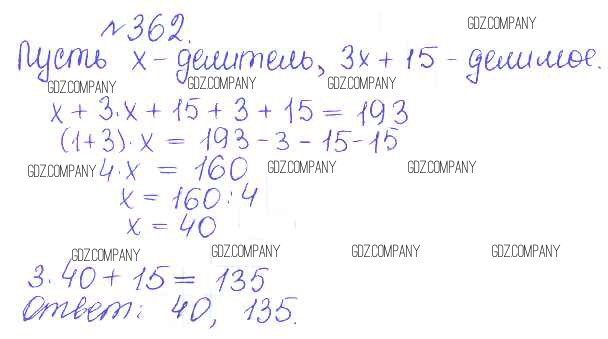 №362.
GDZ.COMPANY
Пусть x - делитель, 3x + 15 - делимое.
GDZ.COMPANY GDZ.COMPANY GDZ.COMPANY
x + 3·x + 15 + 3 + 15 = 193
(1+3)·x = 193 - 3 - 15 - 15
GDZ.COMPANY 4·x = 160 GDZ.COMPANY GDZ.COMPANY
x = 160 : 4
x = 40
GDZ.COMPANY GDZ.COMPANY GDZ.COMPANY GDZ.COMPANY
3·40 + 15 = 135
Ответ: 40, 135.